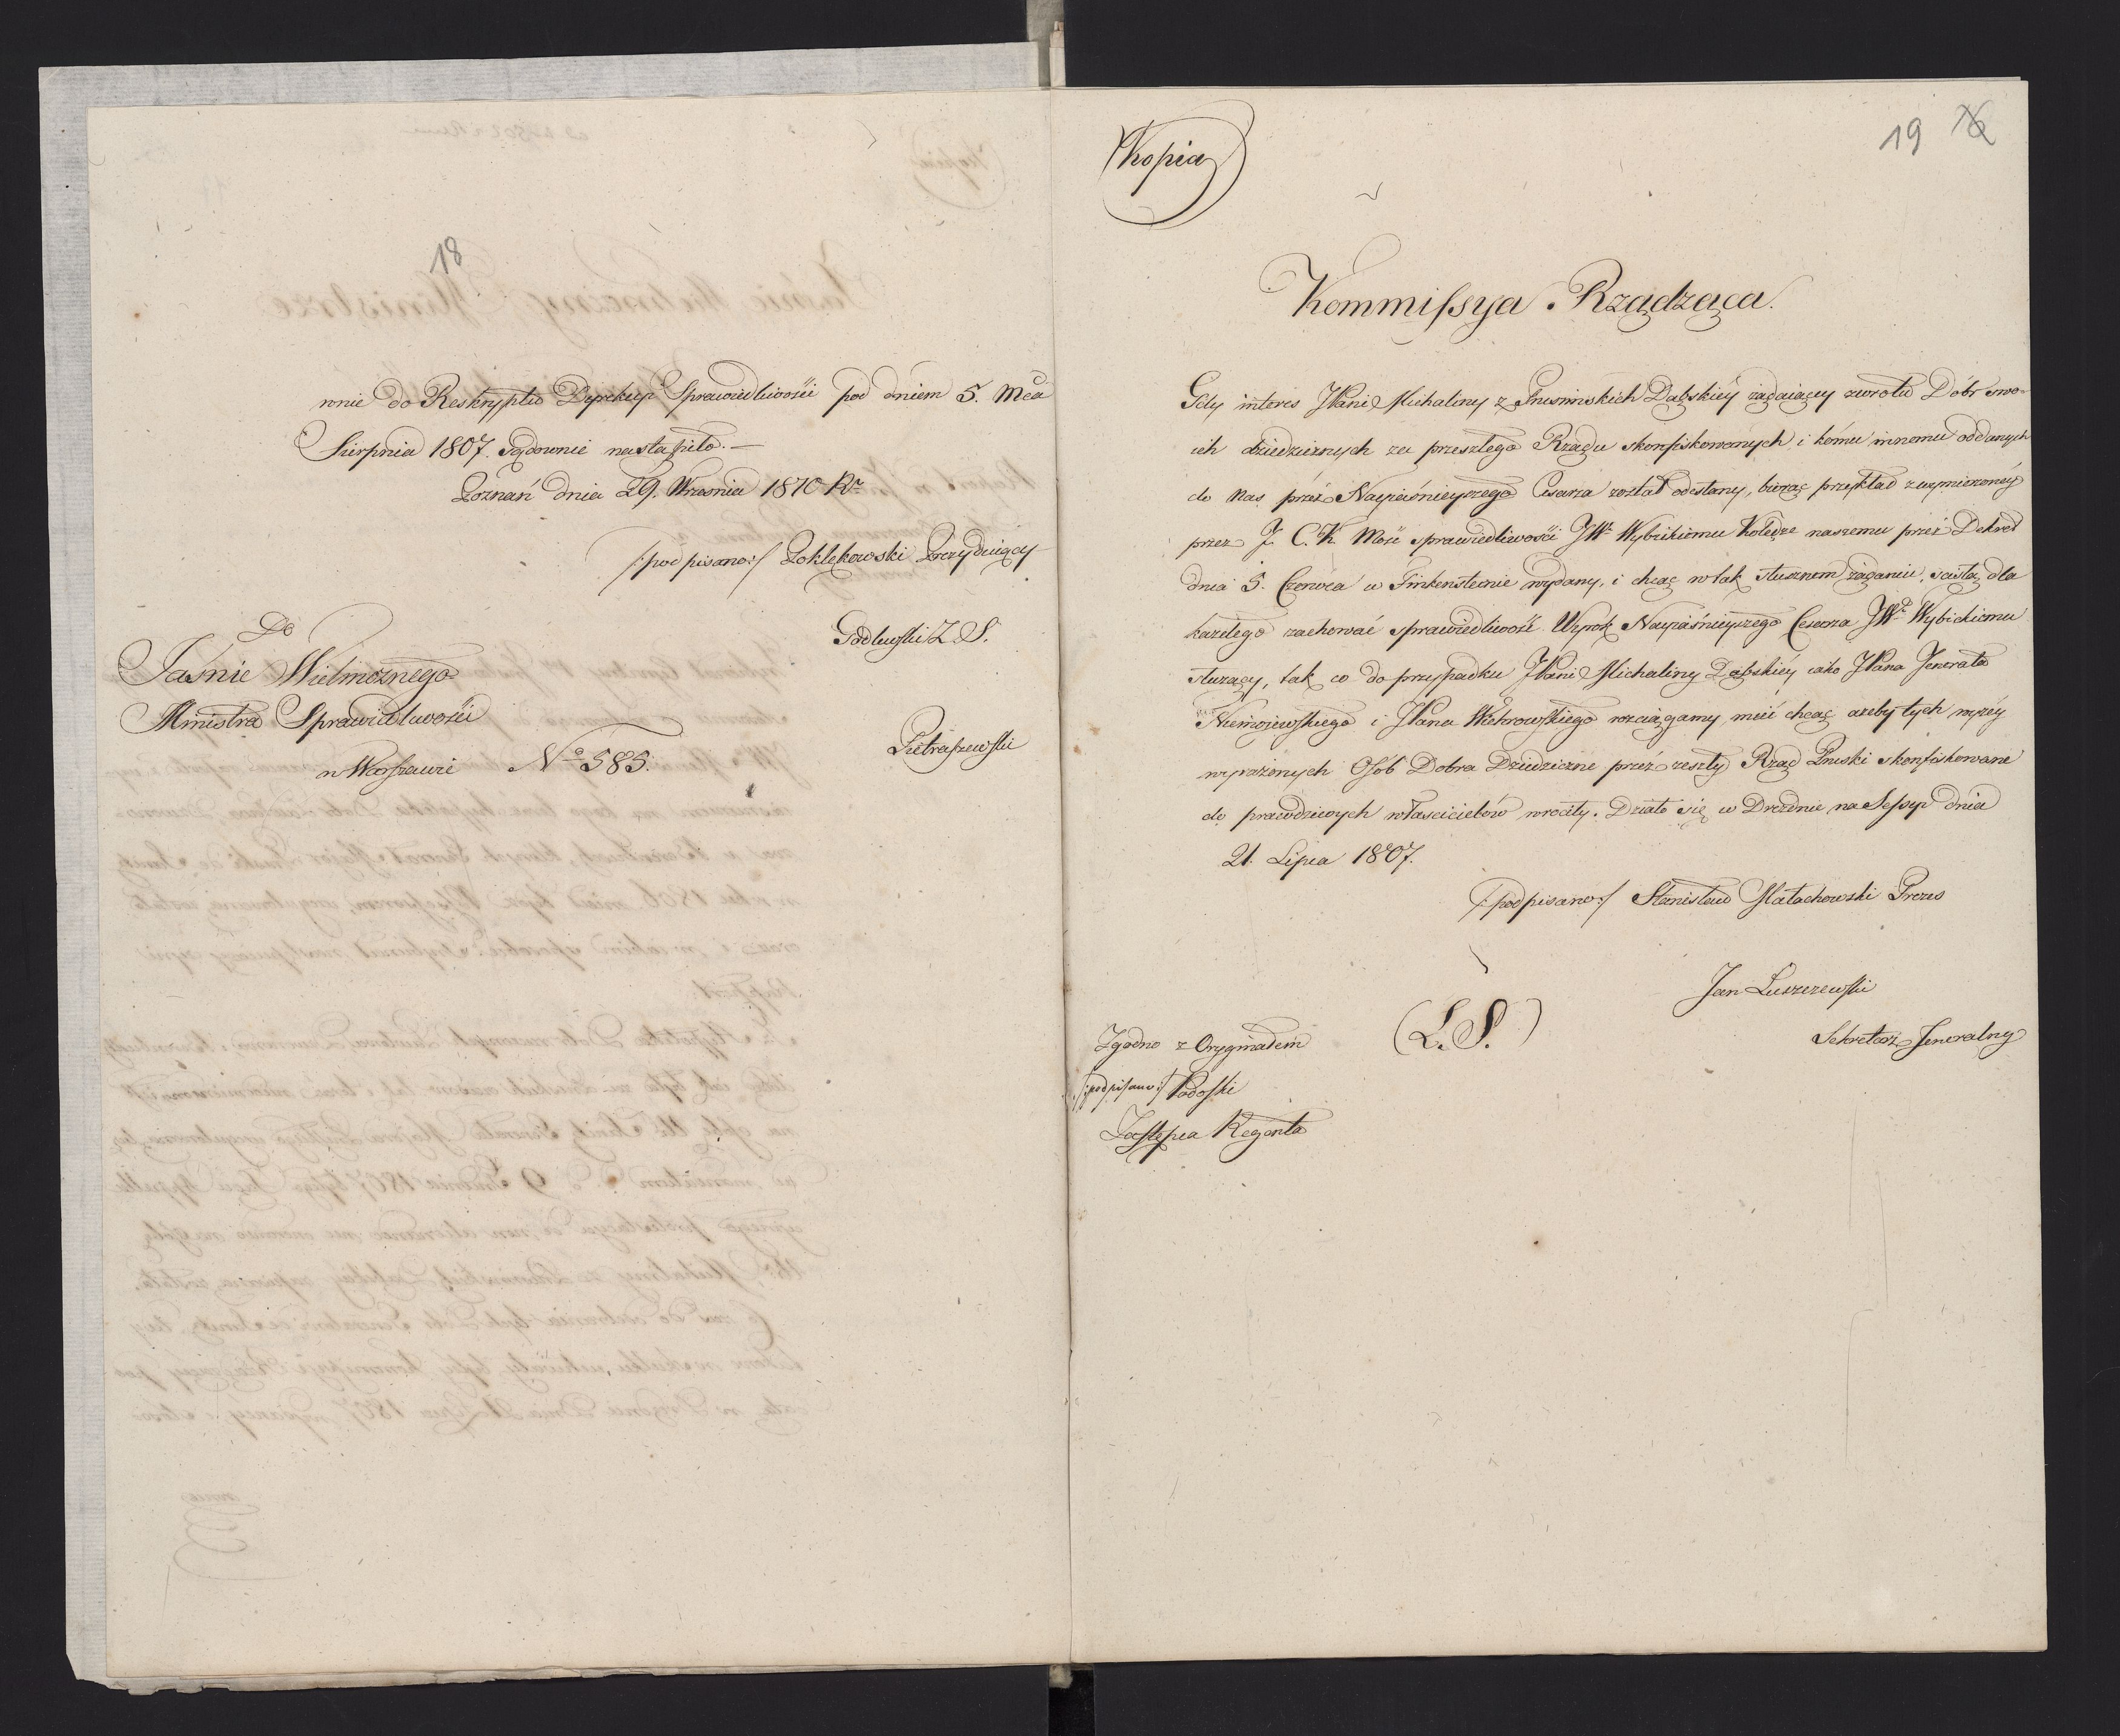 18
wnie do Reskryptu Dyrekcyi Sprawiedliwości pod dniem 5. Mca
Sierpnia 1807. sądownie nastąpiło. —
Poznań dnia 29. Września 1810 Rº
/:podpisano:/ Poklękowski Prezyduiący
Godlewski Z. S.
Do
Jaśnie Wielmożnego
Ministra Sprawiedliwości
w Warszawie Nº 585.
Pietraszewski
19 16
Kopia
Kommissya Rządząca.
Gdy interes JPani Michaliny z Dąbskiéy żądaiącey zwrotu Dóbr swo-
ich dziedzicznych za przeszłego Rządu skonfiskowanych i komu innemu oddanych
do nas przéz Nayiaśnieyszego Cesarza został odesłany, biorąc przykład z wymierzonéy
przez J. C. K. Mość sprawiedliwości JW. Wybickiemu Koledze naszemu przéz Dekret
dnia 5. Czerwca w Finkensteinie wydany, i chcąc w tak słusznem żądaniu, ścisłą dla
każdego zachować sprawiedliwość. Wyrok Nayiaśnieyszego Cesarza JW. Wybickiemu
służący, tak co do przypadku JPani Michaliny Dąbskiéy iako JPana Jenerała
Niemojewskiego i JPana Wichrowskiego rozciągamy, mieć chcąc ażeby tych wyżéy
wyrażonych Osób Dobra Dziedziczne przéz zeszły Rząd Pruski skonfiskowane
do prawdziwych właścicielów wróciły. Działo się w Dreznie na Sessyi dnia
21. Lipca 1807.
/:podpisano:/ Stanisław Małachowski Prezes
Jan Łuszczewski
Sekretarz Jeneralny
(L. S.)
Zgodno z Oryginałem
/:podpisano:/ Podoski
Zastępca Regenta